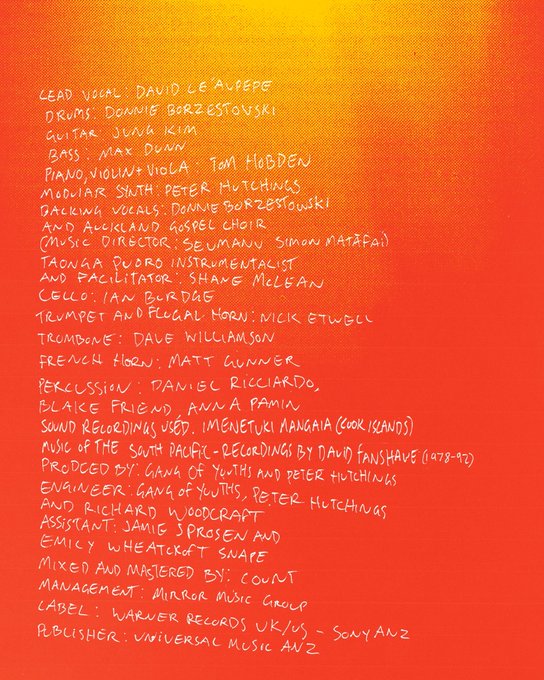 LEAD VOCAL: DAVID LE'AUPEPE
DRUMS: DONNIE BORZESTOWSKI
GUITAR JUNG KIM
BASS: MAX DUNN
PIANO, VIOLIN + VIOLA: TOM HOBDEN
MODULAR SYNTH: PETER HUTCHINGS
BACKING VOCALS: DONNIE BORZESTOWSKI
AND AUCKLAND GOSPEL CHOIR
(MUSIC DIRECTOR: SEUMANU SIMON MATĀFAI)
TAONGA PUORO INSTRUMENTALIST
AND FACILITATOR: SHANE McLEAN
CELLO: IAN BURDGE
TRUMPET AND FLUGAL HORN: NICK ETWELL
TROMBONE: DAVE WILLIAMSON
FRENCH HORN: MATT GUNNER
PERCUSSION: DANIEL RICCIARDO,
BLAKE FRIEND, ANNA PAMIN
SOUND RECORDINGS USED. IMENETUKI MANGAIA (COOK ISLANDS)
MUSIC OF THE SOUTH PACIFIC - RECORDINGS BY DAVID FANSHAWE (1978-92)
PRODUCED BY: GANG OF YOUTHS AND PETER HUTCHINGS
ENGINEER: GANG OF YOUTHS, PETER HUTCHINGS
AND RICHARD WOODCRAFT
ASSISTANT: JAMIE SPROSEN AND
EMILY WHEATCROFT SNAPE
MIXED AND MASTERED BY: COUNT
MANAGEMENT: MIRROR MUSIC GROUP
LABEL: WARNER RECORDS UK/US - SONY ANZ
PUBLISHER: UNIVERSAL MUSIC ANZ